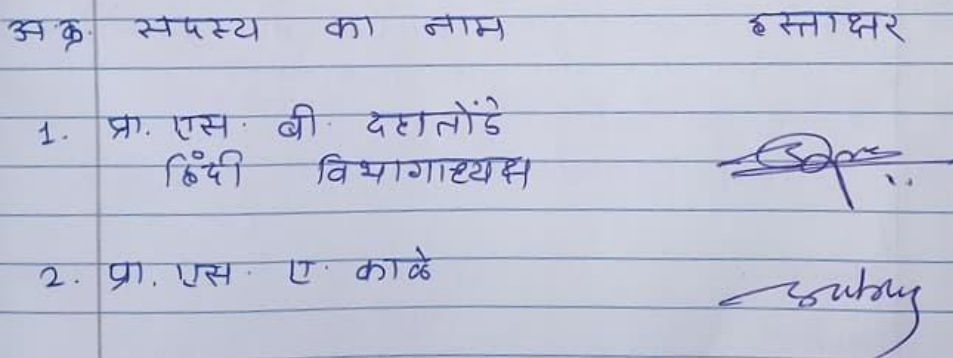 अ.क्र. सदस्य का नाम हस्ताक्षर
1. प्रा. एस. बी. दहातोंडे
हिंदी विभागाध्यक्ष
2. प्रा. एस. ए. काळे